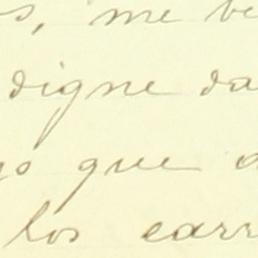 s, me be
digne da
go que d
los carr